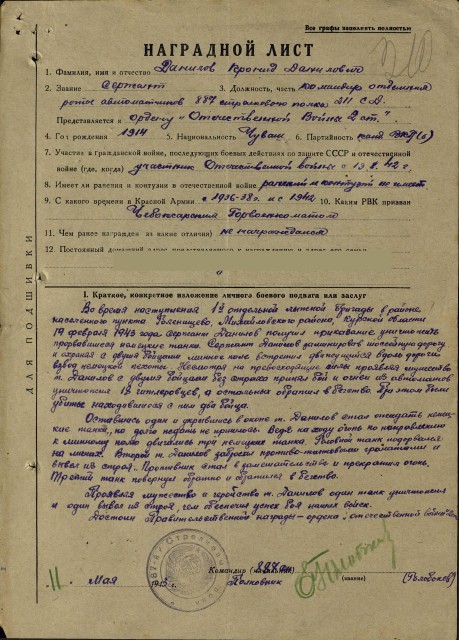 Все графы заполнять полностью
НАГРАДНОЙ ЛИСТ
1. Фамилия, имя и отчество Данилов Кронид Данилович
2. Звание Сержант 3. Должность, часть командир отделения
роты автоматчиков 887 стрелкового полка 211 С.Д.
Представляется к ордену "Отечественной Войны 2 ст."
4. Год рождения 1914 5. Национальность Чуваш 6. Партийность
7. Участие в гражданской войне, последующих боевых действиях по защите СССР и отечественной
войне (где, когда) участник Отечественной войны с 42 г.
8. Имеет ли ранения и контузии в отечественной войне ранений и контузий не имеет
9. С какого времени в Красной Армии с 1936-38 г. и с 1942 10. Каким РВК призван
Чебоксарским Горвоенкоматом
11. Чем ранее награжден (за какие отличия) не награждался
12. Постоянный домашний адрес
ДЛЯ ПОДШИВКИ
I. Краткое, конкретное изложение личного боевого подвига или заслуг
Во время наступления отдельной лыжной бригады в районе
населенного пункта Михайловского района, Курской области
19 февраля 1943 года Сержант Данилов получил приказание уничтожить
прорвавшиеся немецкие танки. Сержант Данилов заминировал шоссейную дорогу
и охраняя с двумя бойцами минное поле встретил движущийся вдоль дороги
взвод немецкой пехоты. Несмотря на превосходящие силы проявляя мужество
т. Данилов с двумя бойцами без страха принял бой и огнем из автоматов
уничтожил 18 гитлеровцев, а остальных обратил в бегство. При этом были
убиты находившиеся с ним два бойца.
Оставшись один и укрывшись в окопе т. Данилов стал ожидать немец-
кие танки, но долго ждать не пришлось. Ведя на ходу огонь по направлению
к минному полю двигались три немецких танка. Первый танк подорвался
на минах. Второй т. Данилов забросал противо-танковыми гранатами и
вывел из строя. Противник стал в замешательстве и прекратил огонь.
Третий танк повернул обратно и обратился в бегство.
Проявляя мужество и геройство т. Данилов один танк уничтожил
и один вывел из строя, чем обеспечил успех боя наших войск.
Достоин Правительственной награды - ордена "Отечественной войны 2 ст."
Командир (начальник) 887 сп
11 Мая 194 Полковник (звание) (Голобоков)